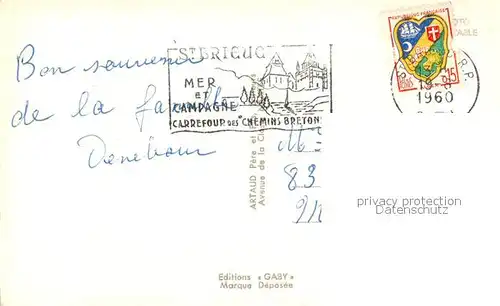 Bon souvenir
de la famille
ST BRIEUC
MER
et
CAMPAGNE
CARREFOUR DES CHEMINS BRETON
REPUBLIQUE FRANÇAISE
15
R.P.
1960
ARTAUD Père et
Avenue de la
83
privacy protection
Datenschutz
Editions « GABY »
Marque Déposée